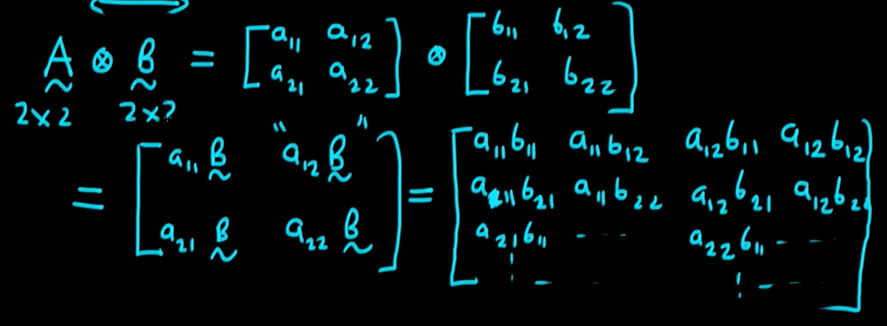 A ⊗ B = [a₁₁ a₁₂; a₂₁ a₂₂] ⊗ [b₁₁ b₁₂; b₂₁ b₂₂]
2×2 2×2
= [a₁₁ B "a₁₂ B"; a₂₁ B a₂₂ B] = [a₁₁b₁₁ a₁₁b₁₂ a₁₂b₁₁ a₁₂b₁₂; a₁₁b₂₁ a₁₁b₂₂ a₁₂b₂₁ a₁₂b₂₂; a₂₁b₁₁ - - - a₂₂b₁₁ - - -; ⋮ - ⋮ - - -]